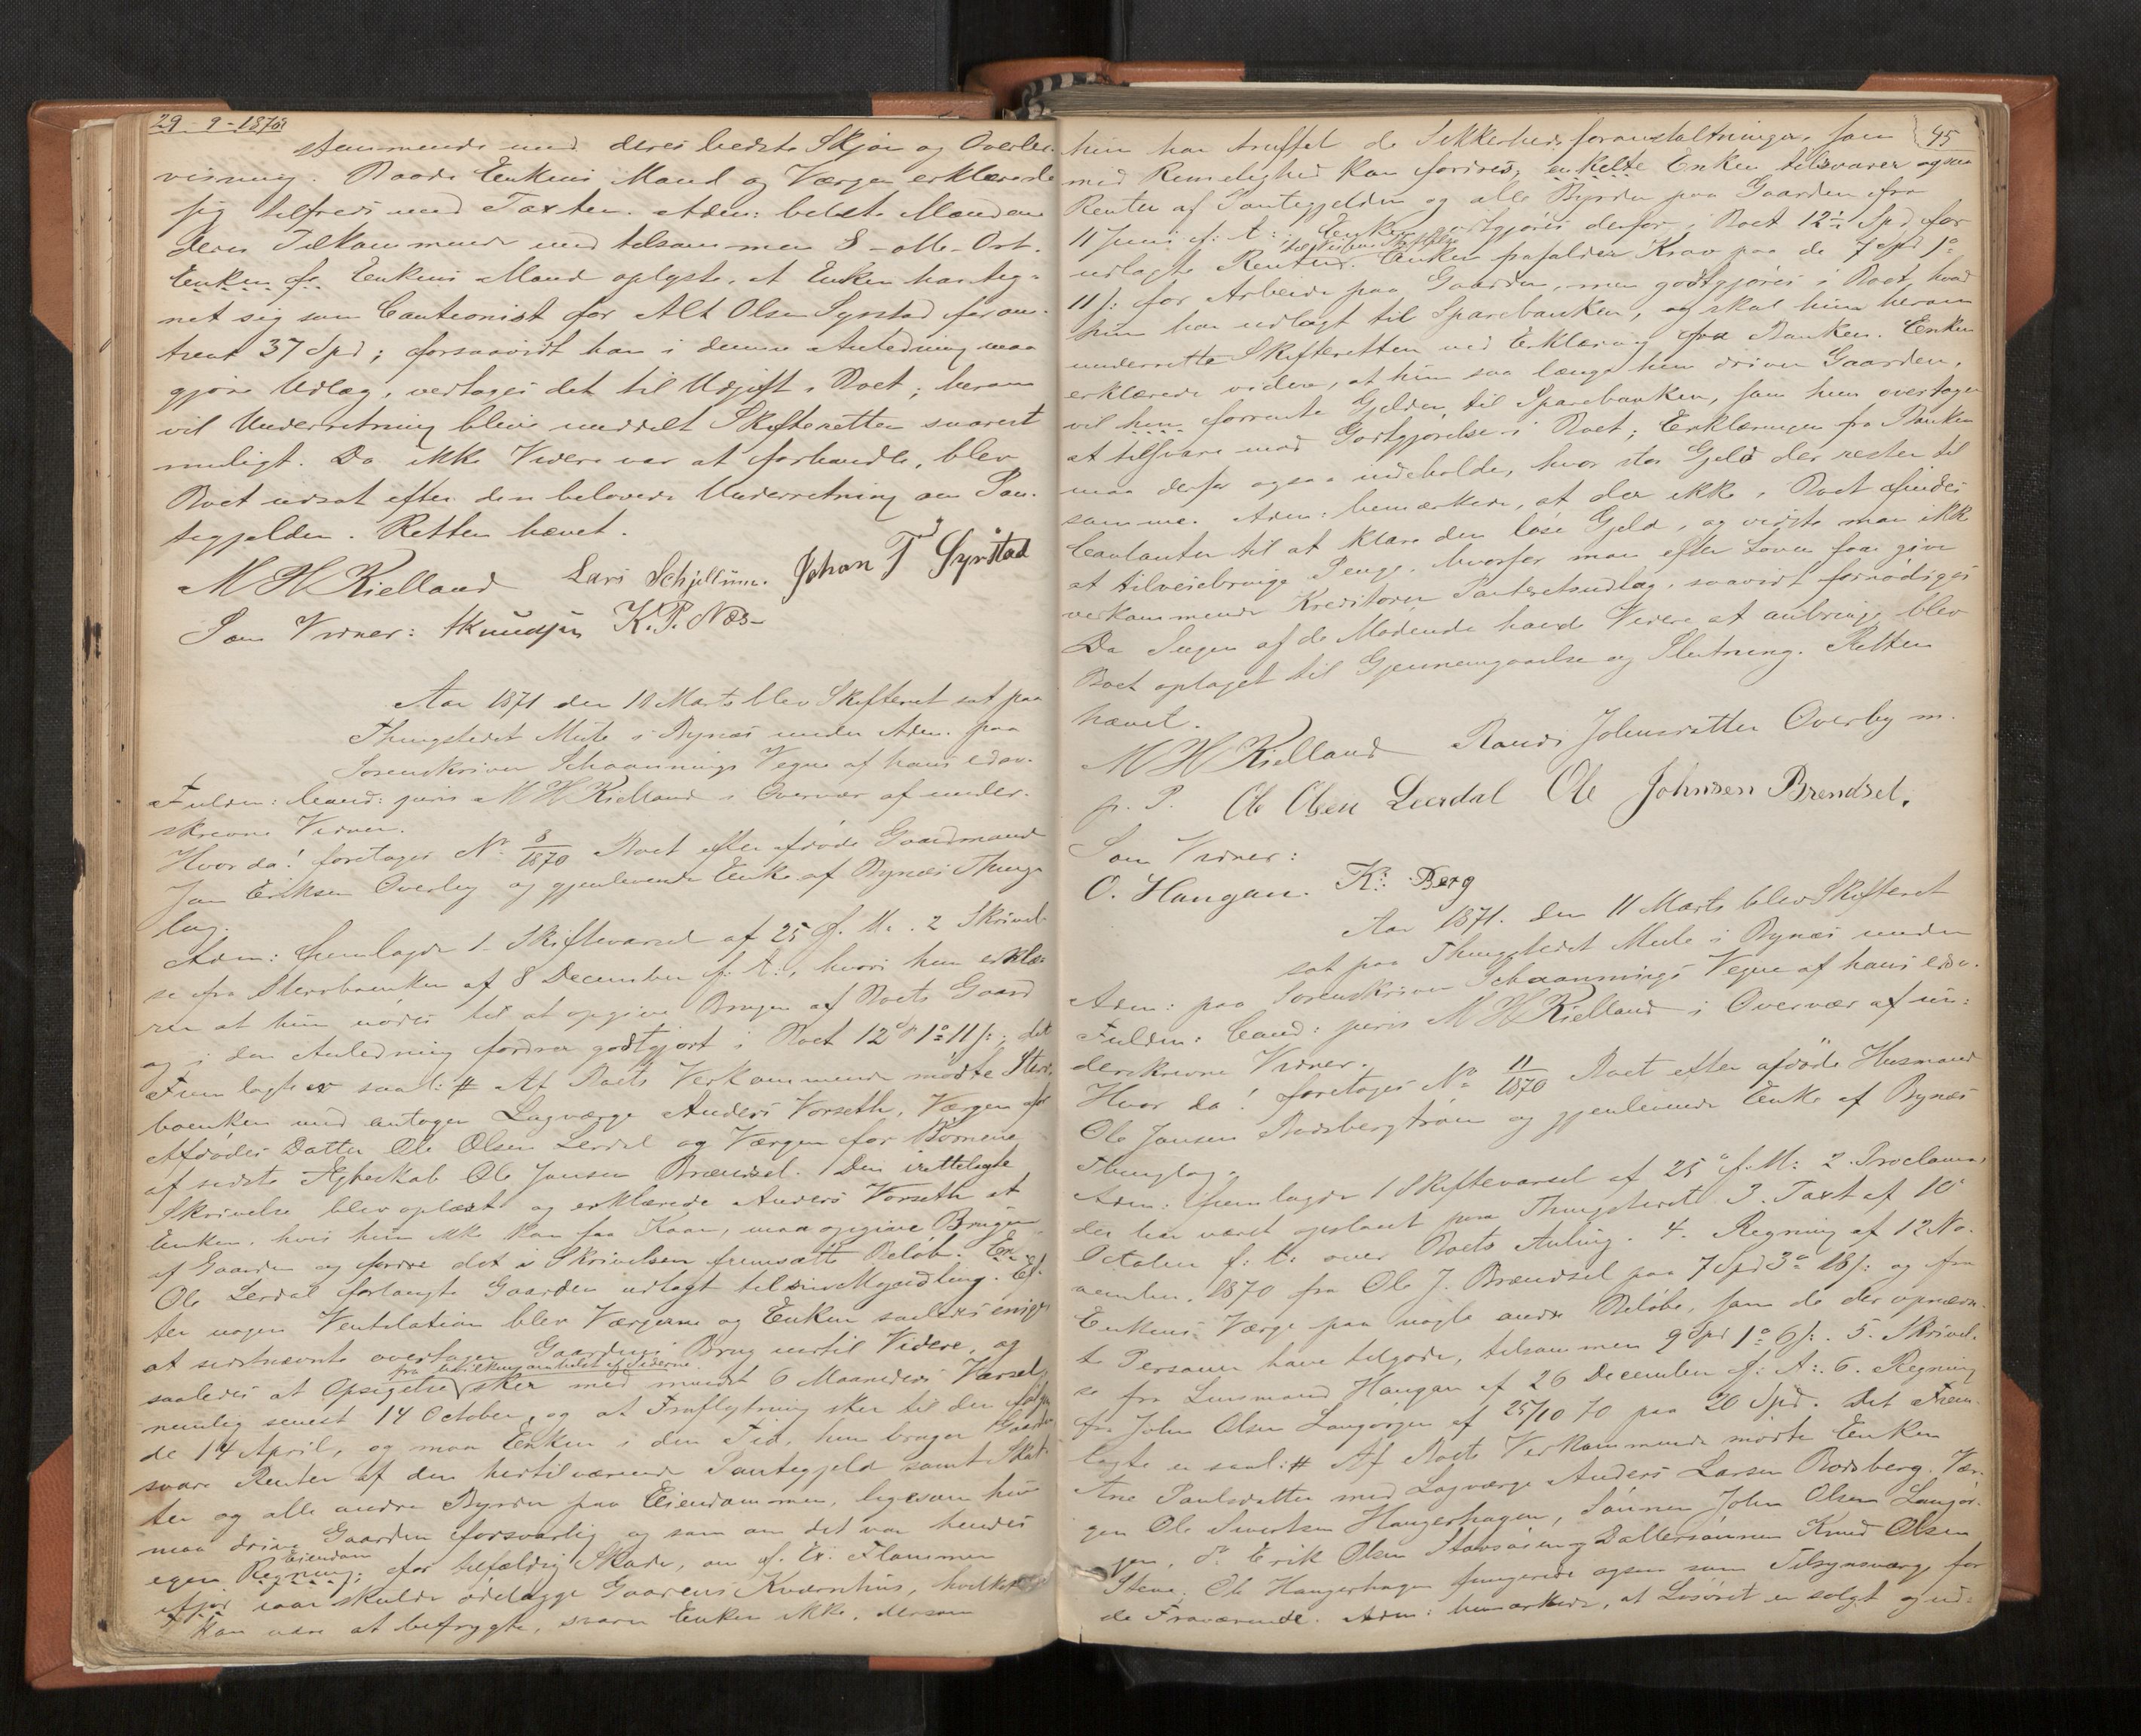 29-9-1870
stemmende med deres bedste Skjøn og Overbe-
visning. Baade Enkens Mand og Værgen erklærede
sig tilfreds med Taxten. Adm: betalte Mændene
deres Tilkommende med tilsammen 8-otte-Ort.
Enken fr. Enkens Mand oplyste, at Enken har teg-
net sig som Cautionist for Alt Olsen Syrstad for om-
trent 37 Spd; forsaavidt han i denne Anledning maa
gjøre Udlæg, vedtages det til Udgift i Boet; herom
vil Underretning blive meddelt Skifteretten snarest
muligt. Da ikke Videre var at forhandle, blev
Boet udsat efter den belovede Underretning om Pan-
tegjelden. Retten hævet.
M H Kielland Lars Schjellum. Johan T Syrstad
Som Vidner: AKnudsen K. P. Næs-
Aar 1871 den 11 Marts blev Skifteret sat paa
Thingstedet Mule i Bynæs under Adm. paa
Sorenskriver Schaannings Vegne af hans edsv.
Fuldm: Cand: juris M H Kielland i Overvær af under-
skrevne Vidner.
Hvor da! foretages No 8/1870 Boet efter afdøde Gaardmand
Jon Eriksen Overby og gjenlevende Enke af Bynæs Thing-
lag.
Adm: fremlagde 1. Skiftevarsel af 25 f. M. . 2 Skrivel-
se fra Stervboenken af 8 December f: A:, hvori hun erklæ-
rer at hun nødes til at opgive Brugen af Boets Gaard
og i den Anledning fordrer godtgjort i Boet 12 Spd 1 o 11 s:; det
Fremlagte er saal: # Af Boets Vedkommende mødte Sterv-
boenken med antagen Lagværge Anders Vorseth, Værgen for
Afdødes Datter Ole Olsen Lerdal og Værgen for Børnene
af sidste Ægteskab Ole Jonsen Brændsel. Den irettelagte
Skrivelse blev oplæst og erklærede Anders Vorseth at
Enken, hvis hun ikke kan faa Kaar, maa opgive Brugen
af Gaarden og fordre det i Skrivelsen fremsatte Beløb. Enk
Ole Lerdal forlangte Gaarden udlagt til sin Myndling. Ef-
ter nogen Ventilation blev Værgerne og Enken saaledes enige
at sidstnævnte overtager Gaardens Brug indtil Videre, og
fra hvilkensomhelst af Siderne.
saaledes at Opsigelse sker med mindst 6 Maaneders Varsel,
nemlig senest 14 October, og at Fraflytning sker til den følgen-
de 14 April, og maa Enken i den Tid, hun bruger Gaarden
svare Renter af den hertilværende Pantegjeld samt Skat-
ter og alle andre Byrder paa Eiendommen, ligesom hun
maa drive Gaarden forsvarlig og som om det var hendes
Eiendom
egen Regning; for tilfældig Skade, om f. Ex. Flommen
iaar skulde ødelægge Gaardens Kværnhus, hvilket
kan være at befrygte, svarer Enken ikke, dersom
45
hun har truffet de Sikkerhedsforanstaltninger, som
med Rimelighed kan fordres, enkelte Enken tilsvarer ogsaa
Renter af Pantegjelden og alle Byrder paa Gaarden fra
11 Juni f: A:. Enken godtgjøres derfor i Boet 12½ Spd for
udlagte Renter. Enken frafalder Krav paa de 7 Spd 1 o
11 s: for Arbeide paa Gaarden, men godtgjøres i Boet, hvad
hun har udlagt til Sparebanken, og skal hun herom
underrette Skifteretten ved Erklæring fra Banken. Enken
erklærede videre, at hun saa længe hun driver Gaarden,
vil hun forrente Gjelden til Sparebanken, som hun overtager
at tilsvare mod Godtgjørelse i Boet; Erklæringen fra Banken
maa derfor ogsaa indeholde, hvor stor Gjeld der rester til
samme. Adm: bemærkede, at der ikke i Boet findes
Contanter til at klare den løse Gjeld, og vidste man ikke
at tilveiebringe Penge, hvorfor man efter Loven faar give
vedkommende Kreditorer Panteretsudlæg, saavidt fornødiges
Da Ingen af de Mødende havde Videre at anbringe blev
Boet optaget til Gjennemgaaelse og Slutning. Retten
hævet.
M H Kielland Randi Johnsdatter Overby m.
p. P. Ole Olsen Leerdal Ole Johnsen Brendsel,
Som Vidner:
O. Haugan. Kr: Berg
Aar 1871. den 11 Marts blev Skifteret
sat paa Thingstedet Mule i Bynæs under
Adm: paa Sorenskriver Schaannings Vegne af hans edsv.
Fuldm: Cand: juris M H Kielland i Overvær af un:
derskrevne Vidner.
Hvor da! foretages No 11/1870 Boet efter afdøde Husmand
Ole Jonsen Rodsbergtrøen og gjenlevende Enke af Bynæs
Thinglag.
Adm: fremlagde 1 Skiftevarsel af 25 f. M: 2. Proclama
der har været opslaaet paa Thingstedet 3. Taxt af 10
October f: A: over Boets Anling. 4. Regning af 12 No-
vember 1870 fra Ole J. Brændsel paa 7 Spd 3 o 18 s: og fra
Enkens Værge paa nogle andre Beløbe, som de der opnævn-
te Personer have tilgode, tilsammen 9 Spd 1 o 6 s:. 5. Skrivel-
se fra Lensmand Haugan af 26 December f: A:. 6. Regning
fra John Olsen Langørgen af 25/10 70 paa 20 Spd. Det Frem-
lagte er saal: # Af Boets Vedkommende mødte Enken
Ane Paulsdatter med Lagværge Anders Larsen Rodsberg. Vær-
gen Ole Sivertsen Haugerhagen, Sønnen John Olsen Langør-
gen, do Erik Olsen Stavsøien og Dattersønnen Knud Olsen
Stene; Ole Haugerhagen fungerede ogsaa som Tilsynsværge for
de Fraværende. Adm: bemærkede, at Løsøret er solgt og ud-